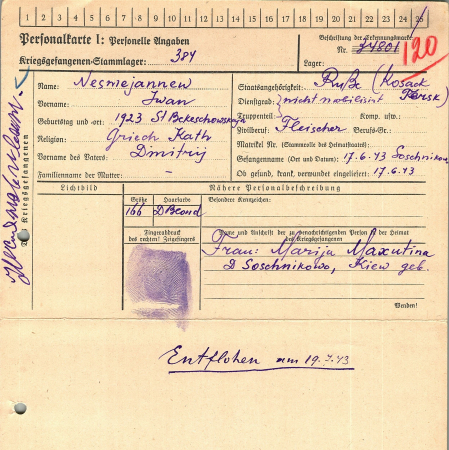 1 2 3 4 5 6 7 8 9 10 11 12 13 14 15 16 17 18 19 20 21 22 23 24 25
Personalkarte I: Personelle Angaben
Kriegsgefangenen-Stammlager: 384
Beschriftung der Erkennungsmarke
Nr. 74801
120
Lager:
Des Kriegsgefangenen
Name: Nesmejannew
Vorname: Iwan
Geburtstag und -ort: 1923 St Bekeschowskaja
Religion: Griech Kath
Vorname des Vaters: Dmitrij
Familienname der Mutter: -
Staatsangehörigkeit: Ruße (Kosack
Dienstgrad: nicht mobilisirt
Truppenteil: Komp. usw.:
Zivilberuf: Fleischer Berufs-Gr.:
Matrikel Nr. (Stammrolle des Heimatstaates):
Gefangennahme (Ort und Datum): 17.6.43 Soschnikowo
Ob gesund, krank, verwundet eingeliefert: 17.6.43
Lichtbild
Nähere Personalbeschreibung
Größe Haarfarbe
166 D Blond
Besondere Kennzeichen:
Fingerabdruck
des rechten! Zeigefingers
Name und Anschrift der zu benachrichtigenden Person in der Heimat
des Kriegsgefangenen
Frau: Marija Maxutina
D Soschnikowo, Kiew geb.
Wenden!
Entflohen am 19.7.43